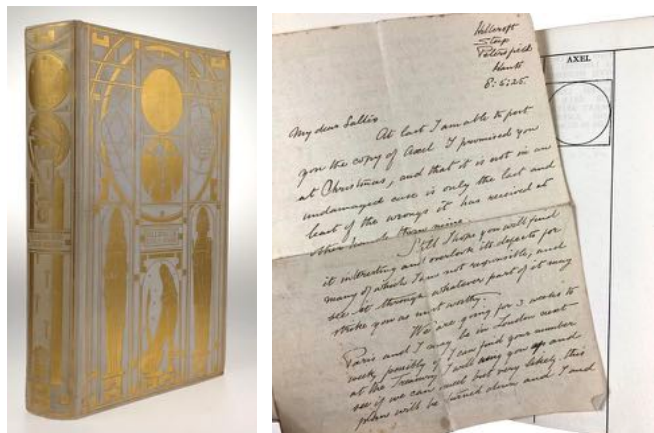 Hillcroft
Steep
Petersfield
Hants
8:5:25.
My dear Sallis
At last I am able to post
you the copy of Axel I promised you
at Christmas, and that it is not in an
undamaged case is only the last and
least of the wrongs it has received at
other hands than mine.
Still I hope you will find
it interesting and overlook its defects for
many of which I am not responsible, and
see it through whatever part of it may
strike you as most worthy.
We are going for 3 weeks to
Paris and I may be in London next
week, possibly if I can find your number
at the Treasury I will ring you up and
see if we can meet but very likely this
plan will be turned down and I and
AXEL